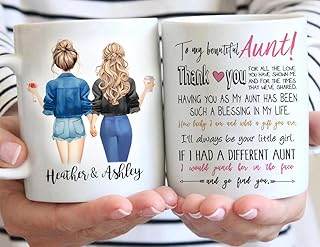 Heather & Ashley
To my beautiful Aunt!
Thank you
FOR ALL THE LOVE
YOU HAVE SHOWN ME
AND FOR THE TIMES
THAT WE'VE SHARED.
HAVING YOU AS MY AUNT HAS BEEN
SUCH A BLESSING IN MY LIFE.
How lucky I am and what a gift you are,
I'll always be your little girl.
IF I HAD A DIFFERENT AUNT
I would punch her in the face
and go find you.